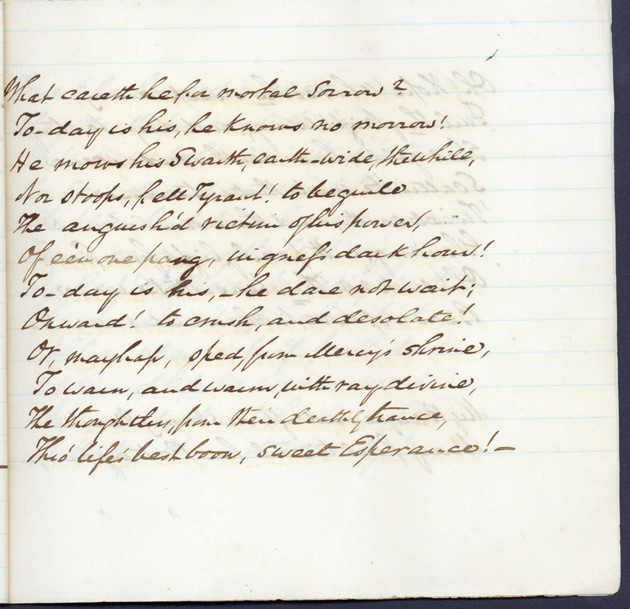 What careth he for mortal Sorrow?
To-day is his, he knows no morrow!
He mows his Swarth, earth-wide, the while,
Nor stoops, fell Tyrant! to beguile
The anguish'd victim of his power,
Of e'en one pang, in grief's dark hour!
To-day is his, – he dare not wait;
Onward! to crush, and desolate!
Or, mayhap, sped, from Mercy's shrine,
To warn, and warm, with ray divine,
The thoughtless, from their deathly trance,
Thro' life's best boon, sweet Esperance! –